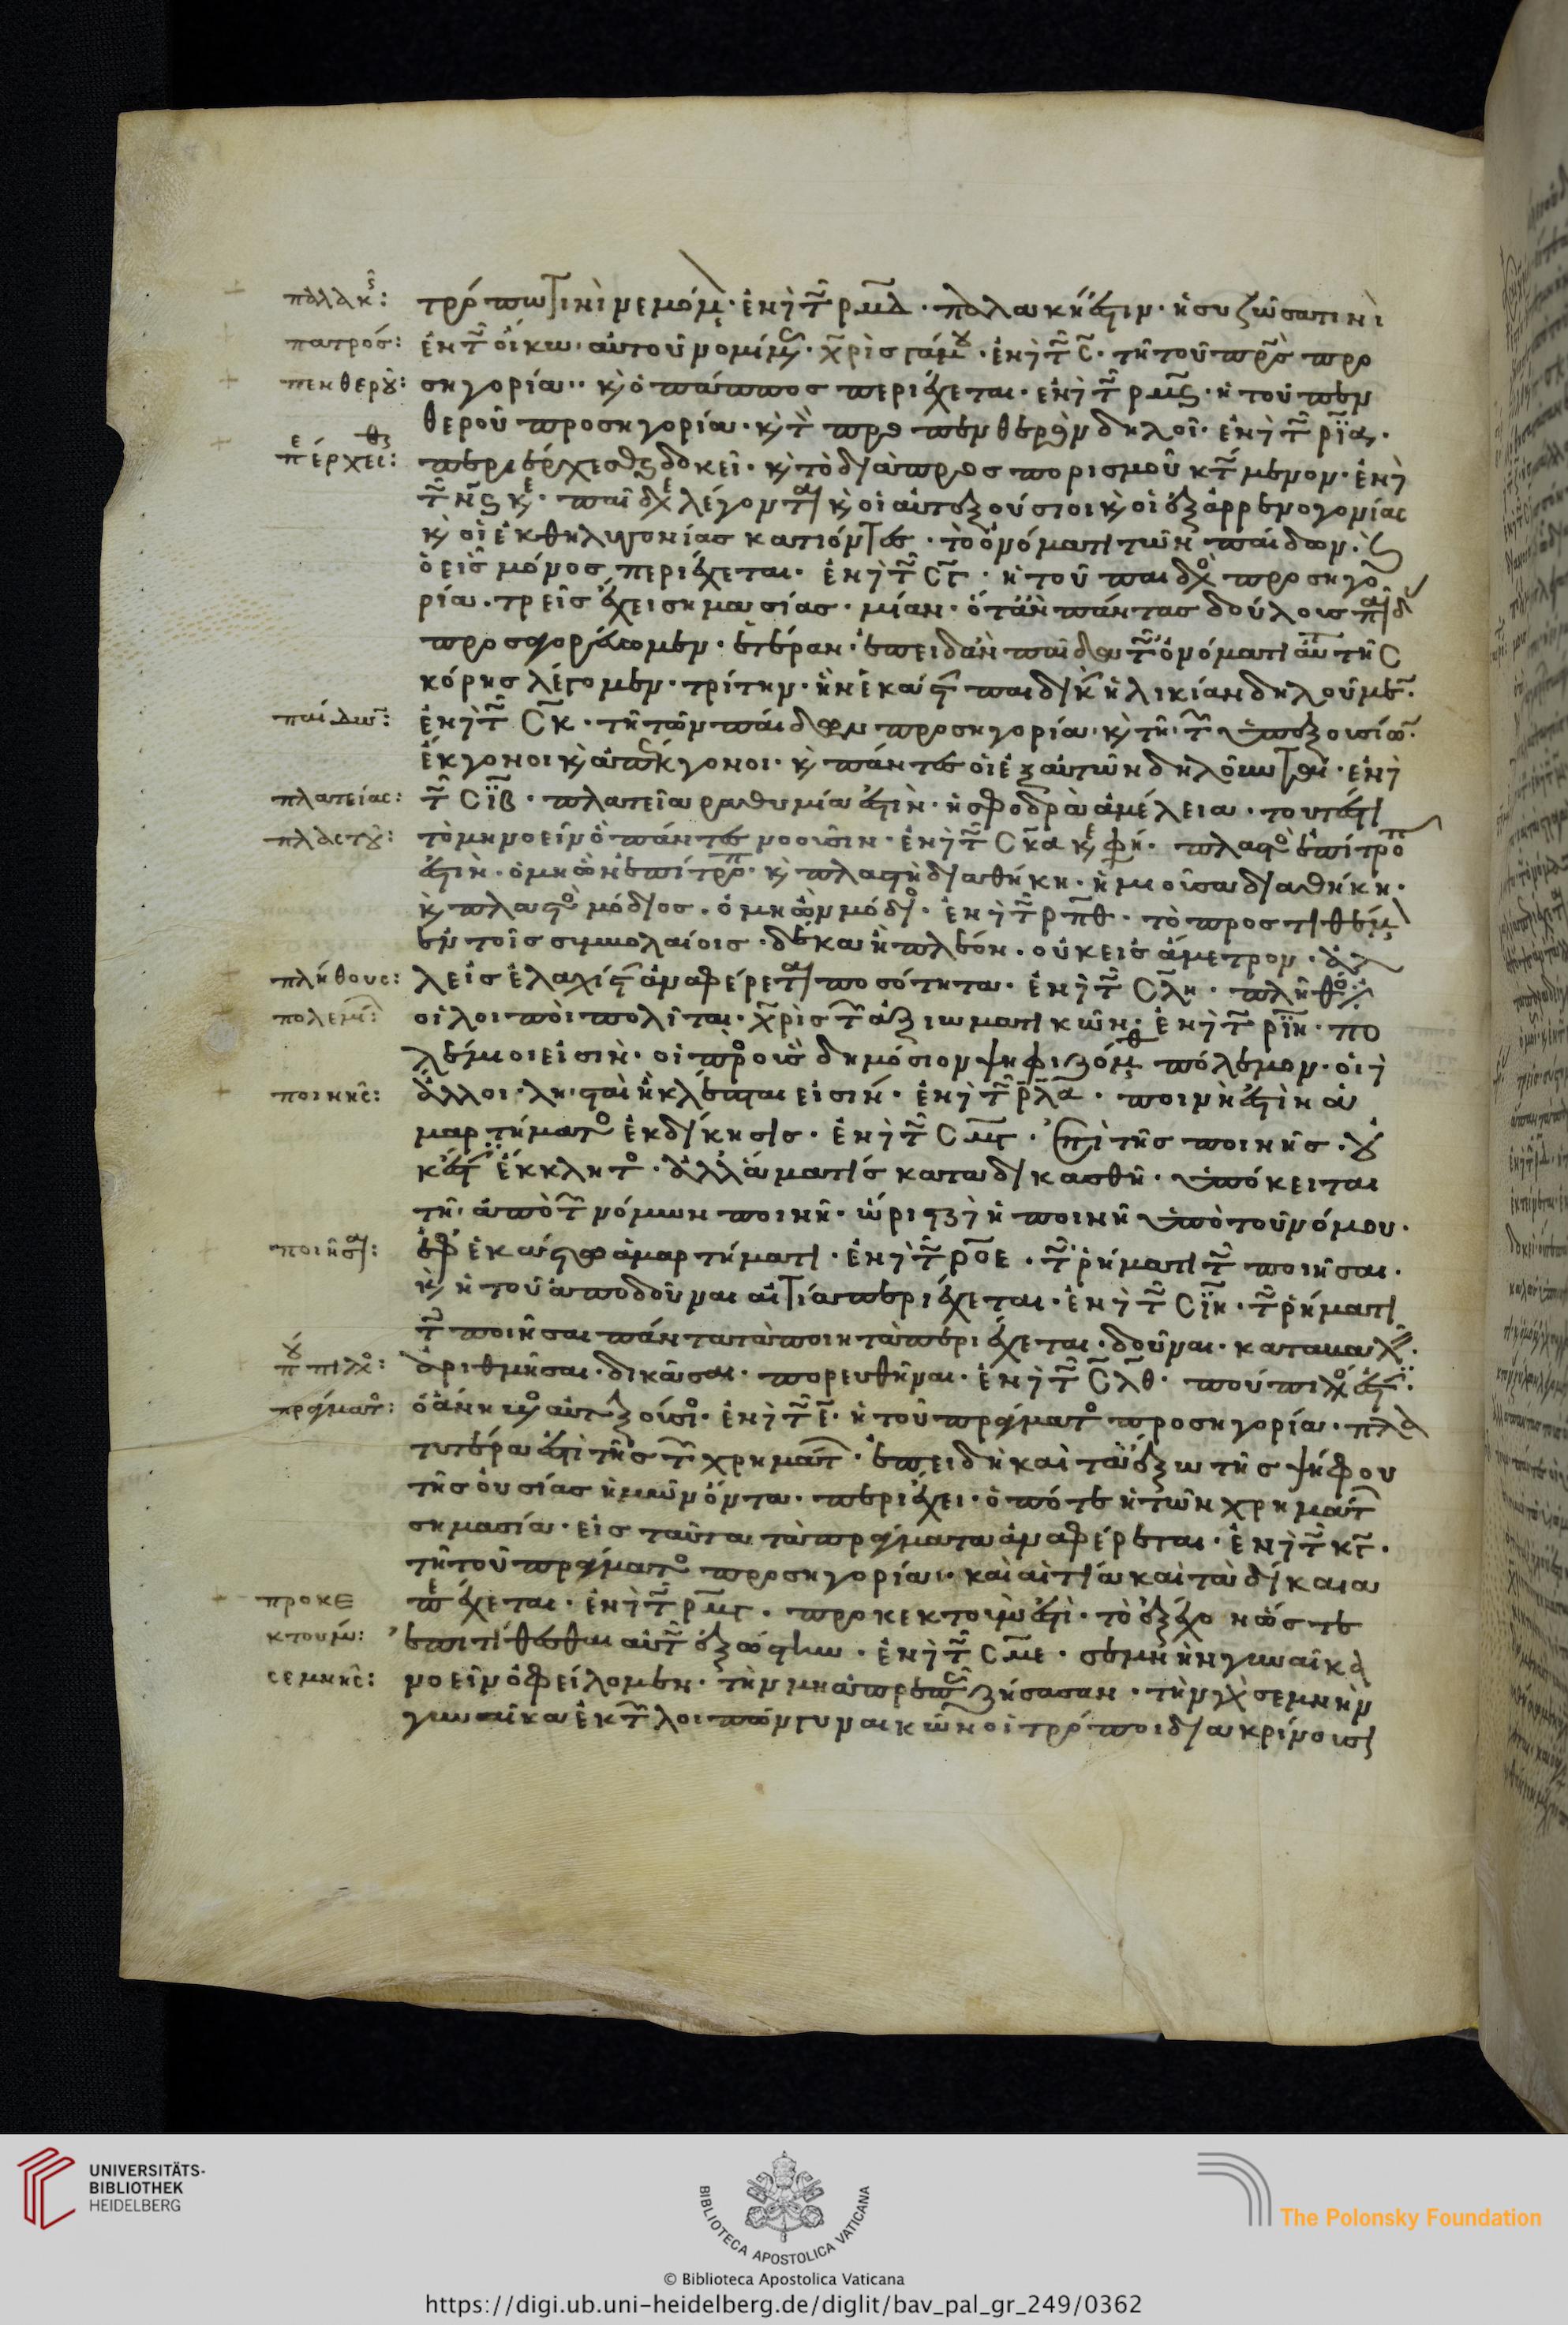 παλακῆς: τρόπω τινὶ νεμόμ. ἐν τῶ ρμδ. παλακή ἐστιν. ἡ συζῶσα τινὶ
πατρός: ἐν τῶ οἴκω αὐτοῦ νομίμως. χωρὶς γάμου. ἐν τῶ σ. τῆ τοῦ πρς προ
πενθεροῦ: σηγορία. καὶ ὁ πάππος περιέχεται. ἐν τῶ ρμς. ἡ τοῦ πεν
θεροῦ προσηγορία. καὶ τὸν προ πενθερὸν δηλοῖ. ἐν τῶ ρια.
περιέρχεσθαι δοκεῖ. καὶ τὸ διὰ προσπορισμοῦ κτώμενον. ἐν
παῖδες λέγονται καὶ οἱ αὐτεξούσιοι καὶ οἱ ἐξ ἀρρενογονίας
καὶ οἱ ἐκ θηλυγονίας κατιόντες. τὸ ὀνόματι τῶν παίδων. καὶ
ὁ εἷς μόνος περιέχεται. ἐν τῶ σγ. ἡ τοῦ παιδὸς προσηγο
ρία. τρεῖς ἔχει σημασίας. μίαν. ὅταν πάντας δούλους παῖδας
προσαγορεύωμεν. ἑτέραν. ἐπειδὰν παῖδα τῶ ὀνόματι ἀντὶ
κόρης λέγομεν. τρίτην. ἡνίκα τὴν παιδικὴν ἡλικίαν δηλοῦμεν.
παίδων: ἐν τῶ σκ. τῆ τῶν παίδων προσηγορία. καὶ τῆ τῶν ὑπεξουσίων.
ἔκγονοι καὶ ἀπέκγονοι. καὶ πάντες οἱ ἐξ αὐτῶν δηλοῦνται. ἐν
πλατείας: τῶ σιβ. πλατεῖα ραθυμία ἐστὶν. ἡ σφοδρὰ ἀμέλεια. τουτέστι
πλαστοῦ: τὸ μὴ νοεῖν ὃ πάντες νοοῦσιν. ἐν τῶ σκα καὶ φη. πλαστὸς ἐπίτροπος
ἐστὶν. ὁ μὴ ὢν ἐπίτροπος. καὶ πλαστὴ διαθήκη. ἡ μὴ οὖσα διαθήκη.
καὶ πλαστὸς μόδιος. ὁ μὴ ὢν μόδιος. ἐν τῶ ρπθ. τὸ προστιθέμενον
ἐν τοῖς συμβολαίοις. δέκα ἢ πλέον. οὐκ εἰς ἄμετρον. ἀλ
πλήθους: λ εἰς ἐλαχίστην ἀναφέρεται ποσότητα. ἐν τῶ σλη. πλῆθος
πολεμ: οἱ λοιποὶ πολῖται. χωρὶς τῶν ἀξιωματικῶν. ἐν τῶ ριη. πο
λέμιοι εἰσὶν. οἱ πρὸς οὓς δημόσιον ψηφιζόμεθα πόλεμον. οἱ
ποινῆς: ἄλλοι. λησταὶ ἢ κλέπται εἰσίν. ἐν τῶ ρλα. ποινὴ ἐστὶν ἁ
μαρτήματος ἐκδίκησις. ἐν τῶ σμγ. ἐπὶ τῆς ποινῆς. οὐ
κ ἔστιν ἔκκλητος. ἀλλ' ἅμα τις καταδικασθῆ. ὑπόκειται
τῆ ἀπὸ τῶν νόμων ποινῆ. ὥρισται ἡ ποινὴ ὑπὸ τοῦ νόμου.
ποιῆσαι: ἐφ' ἑκάστω ἁμαρτήματι. ἐν τῶ ροε. τῶ ῥήματι τῶ ποιῆσαι.
καὶ ἡ τοῦ ἀποδοῦναι αἰτία περιέχεται. ἐν τῶ σιη. τῶ ῥήματι
τῶ ποιῆσαι πάντα τὰ ποιητὰ περιέχεται. δοῦναι.
ἀριθμῆσαι. δικάσαι. πορευθῆναι. ἐν τῶ σλθ. πούπιλος ἐστίν.
πράγματος: ὁ ἄνηβος αὐτεξούσιος. ἐν τῶ ε. ἡ τοῦ πράγματος προσηγορία. πλα
τυτέρα ἐστὶ τῆς τῶν χρημάτων. ἐπειδὴ καὶ τὰ ἔξω τῆς ψήφου
τῆς οὐσίας ἡμῶν ὄντα. περιέχει. ὁπότε ἡ τῶν χρημάτων
σημασία. εἰς ταῦτα τὰ πράγματα ἀναφέρεται. ἐν τῶ κγ.
τῆ τοῦ πράγματος προσηγορία. καὶ αἰτία καὶ τὰ δίκαια
προκε περιέχεται. ἐν τῶ ρμγ. προκεκτουμ ἐστὶ. τὸ ἐξ
κτουμ: ἐπιτίθεσθαι αὐτῶ. ἐν τῶ σμε. σεμνὴν γυναῖκα
σεμνῆς: νοεῖν ὀφείλομεν. τὴν μὴ ἀπρεπῶς ζήσασαν. τὴν γὰρ σεμνὴν
γυναῖκα ἐκ τῶν λοιπῶν γυναικῶν οἱ τρόποι διακρίνουσι
UNIVERSITÄTS-
BIBLIOTHEK
HEIDELBERG
BIBLIOTECA APOSTOLICA VATICANA
The Polonsky Foundation
© Biblioteca Apostolica Vaticana
https://digi.ub.uni-heidelberg.de/diglit/bav_pal_gr_249/0362